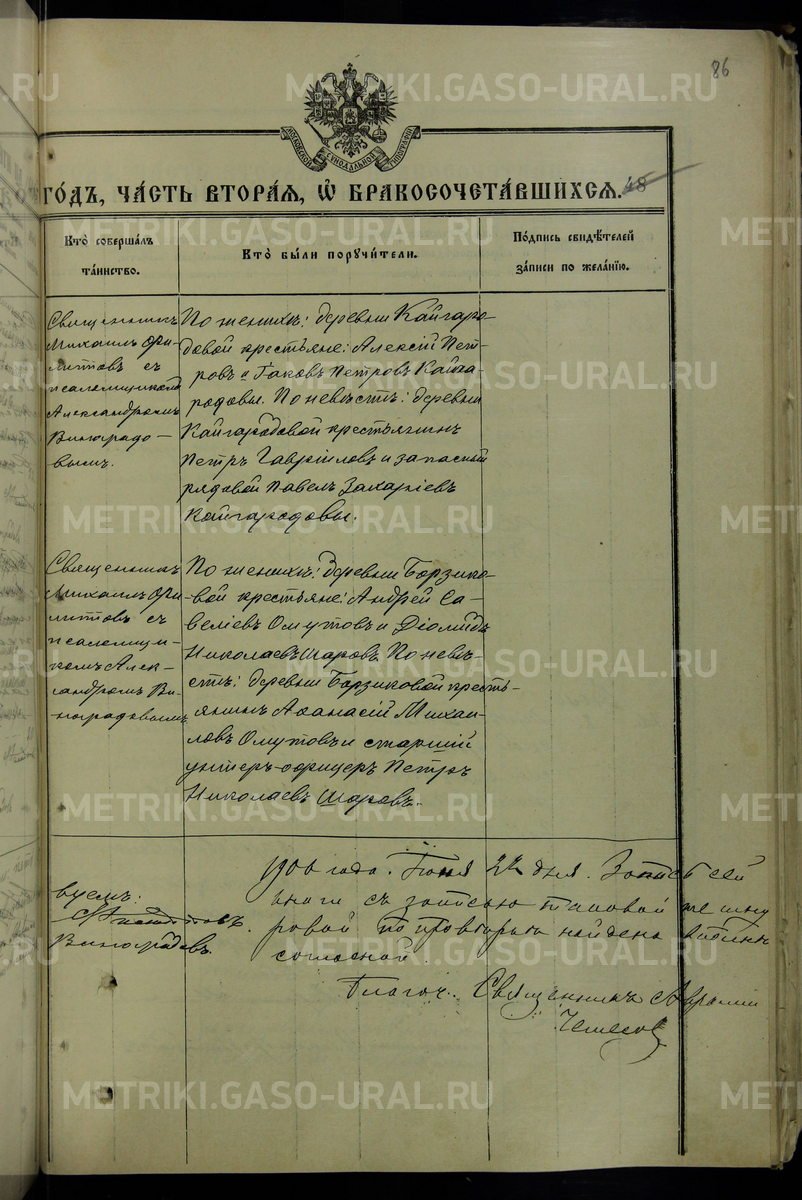 86
МОСКОВСКОЙ СѴНОДАЛЬНОЙ ТИПОГРАФІИ
ГО́ДЪ, ЧА́СТЬ ВТОРА́Я, Ѽ БРАКОСОЧЕТА́ВШИХСЯ.
Кто̀ соверша́лъ
та́инство.
Кто̀ бы́ли порꙋчи́тели.
По́дпись свидѣ́телей
за́писи по жела́нїю.
Священникъ
Михаилъ Фи-
литовъ съ
псаломщикомъ
Александромъ
Виноградо-
вымъ.
По женихѣ: деревни Кайгаро-
довой крестьяне: Алексій Пет-
ровъ и Іаковъ Петровъ Кайга-
родовы. По невѣстѣ: деревни
Кайгородовой крестьянинъ
Петръ Гавріиловъ и запасный
рядовой Павелъ Захаріевъ
Кайгородовы.
Священникъ
Михаилъ Фи-
литовъ съ
псаломщи-
комъ Алек-
сандромъ Ви-
ноградовымъ
По женихѣ: деревни Борзико-
вой крестьяне: Андрей Са-
веліевъ Омутовъ и Діомидъ
Николаевъ Шаровъ. По невѣ-
стѣ: деревни Борзиковой кресть-
янинъ Аѳанасій Михаи-
ловъ Омутовъ и старшій
унтеръ-офицеръ Петръ
Николаевъ Шаровъ.
Виноградовъ.
1906 года. Іюня 22 дня. Запись сей
книги съ записью таковой же
по найдена
согласной.
Благоч. Священникъ
METRIKI.GASO-URAL.RU